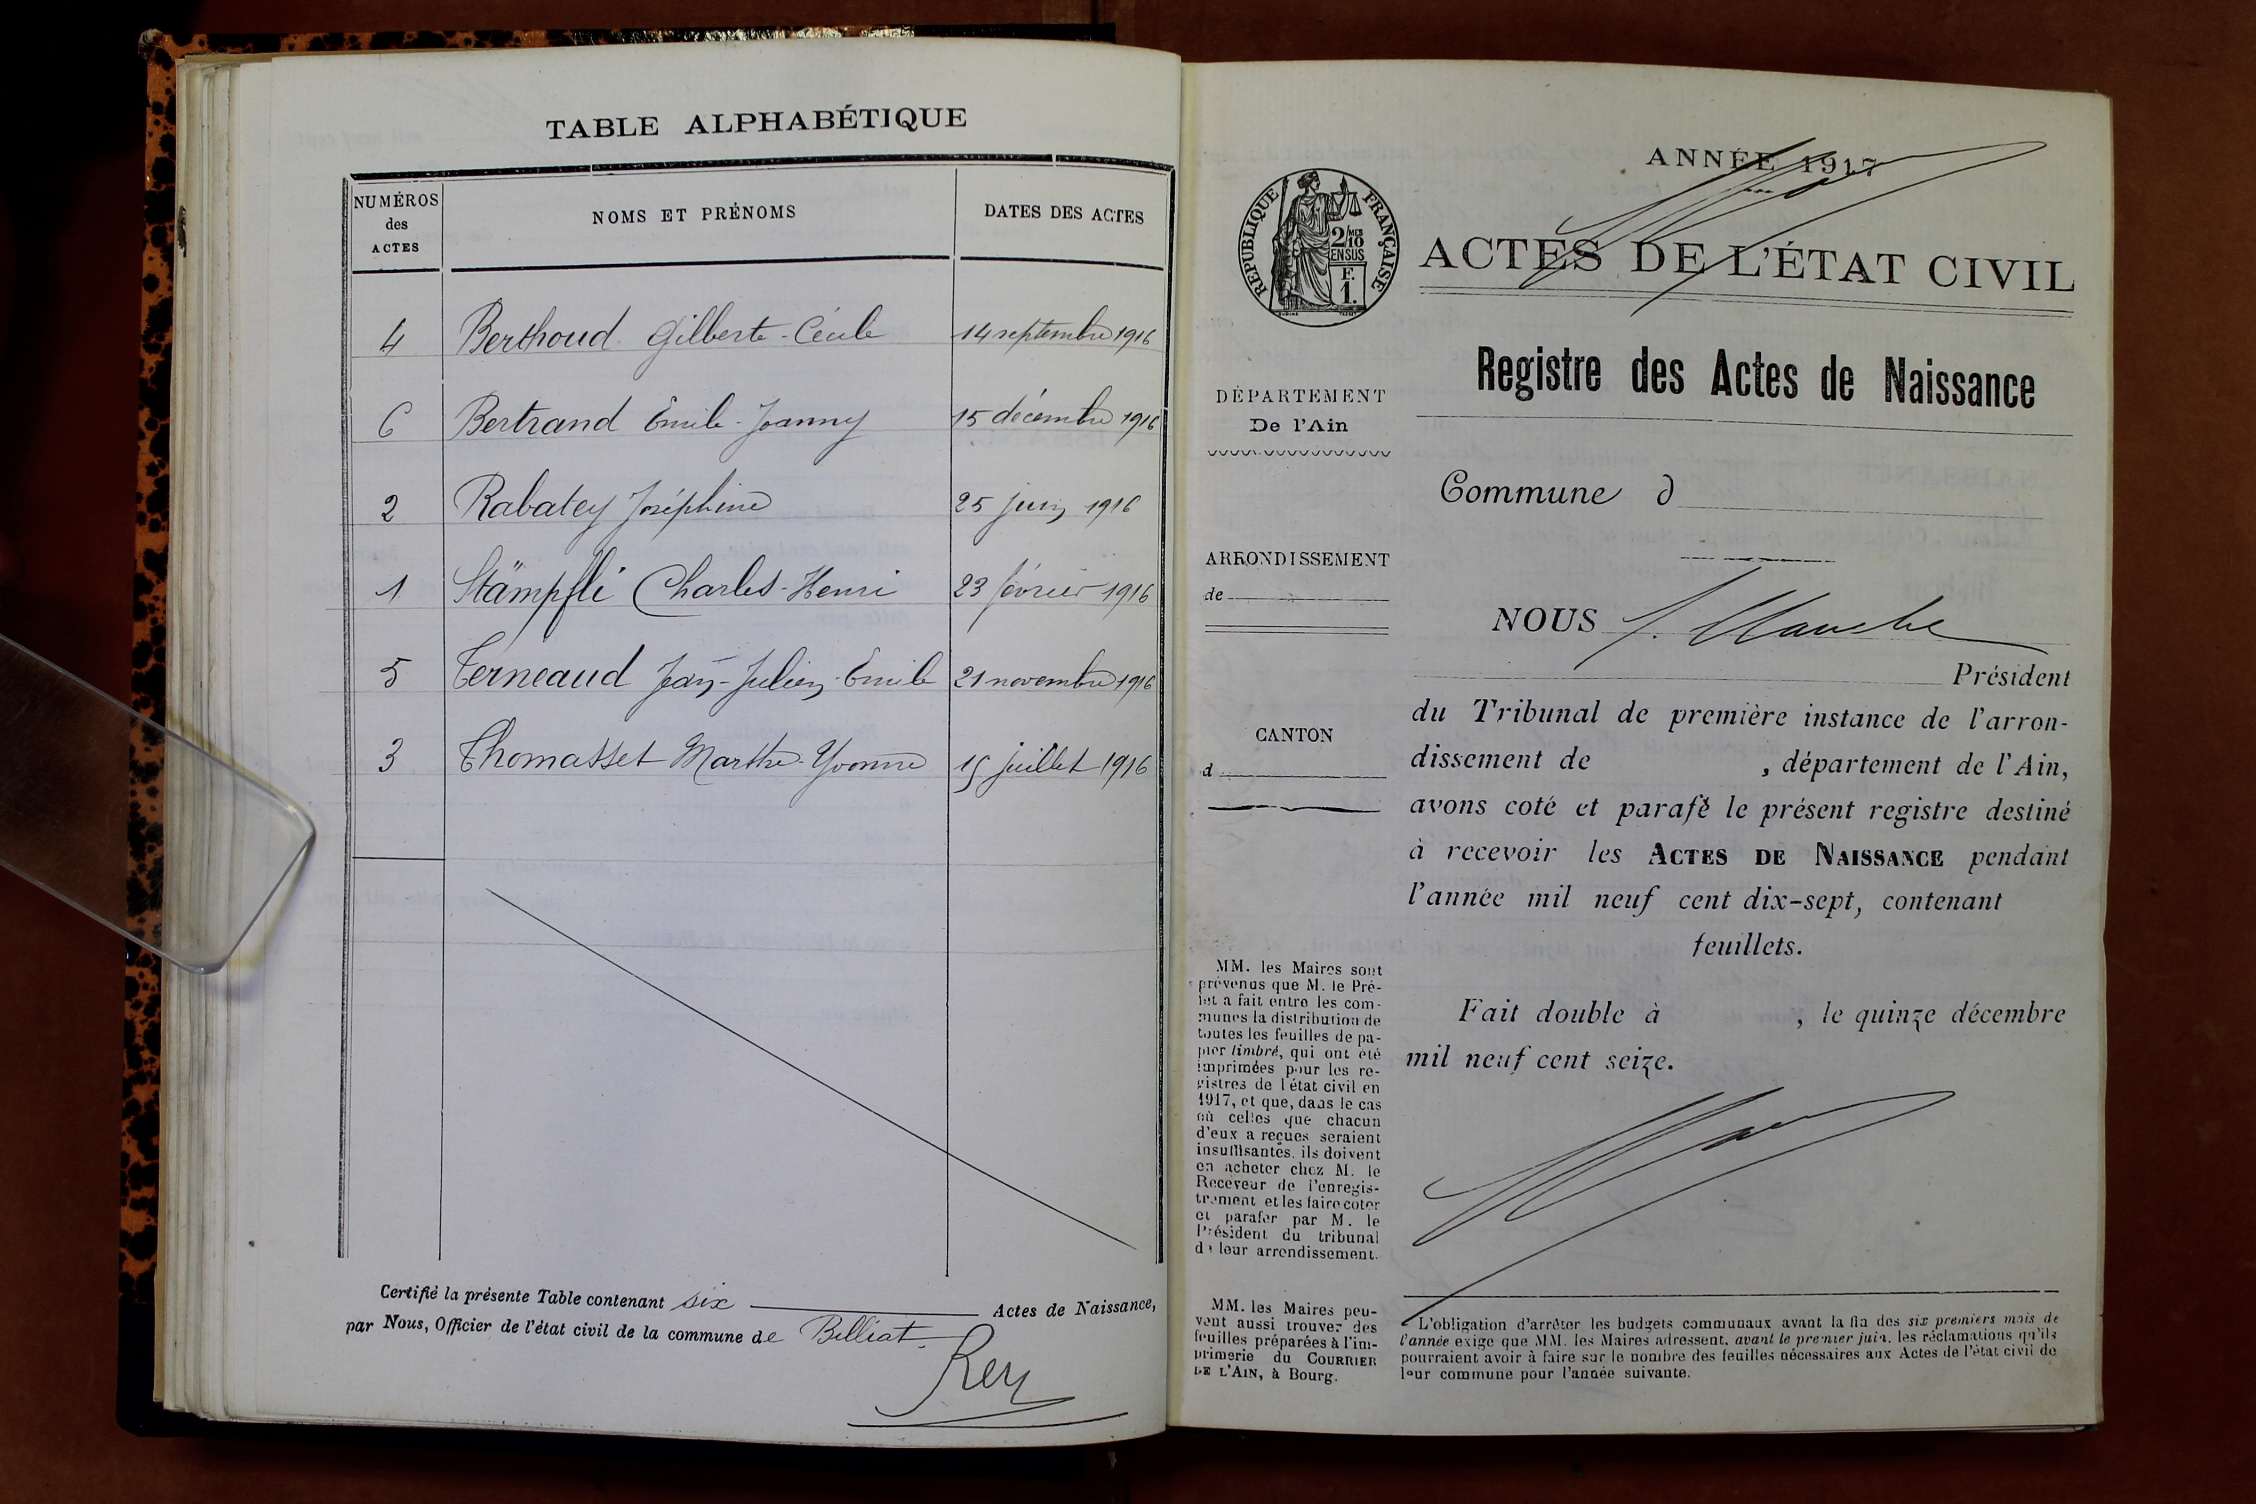 TABLE ALPHABÉTIQUE
NUMÉROS des ACTES
NOMS ET PRÉNOMS
DATES DES ACTES
4 Berthoud Gilberte-Cécile 14 septembre 1916
6 Bertrand Emile-Joanny 15 décembre 1916
2 Rabatey Joséphine 25 juin 1916
1 Stämpfli Charles-Henri 23 février 1916
5 Terneaud Jean-Julien-Emile 21 novembre 1916
3 Thomasset Marthe-Yvonne 15 juillet 1916
Certifié la présente Table contenant six Actes de Naissance,
par Nous, Officier de l'état civil de la commune de Billiat.
Rey
RÉPUBLIQUE FRANÇAISE
2/10 MES
EN SUS
F.
1.
DÉPARTEMENT
De l'Ain
ARRONDISSEMENT
de
CANTON
d
MM. les Maires sont
prévenus que M. le Pré-
fet a fait entre les com-
munes la distribution de
toutes les feuilles de pa-
pier timbré, qui ont été
imprimées pour les re-
gistres de l'état civil en
1917, et que, dans le cas
où celles que chacun
d'eux a reçues seraient
insuffisantes, ils doivent
en acheter chez M. le
Receveur de l'enregis-
trement et les faire coter
et parafer par M. le
Président du tribunal
de leur arrondissement.
MM. les Maires peu-
vent aussi trouver des
feuilles préparées à l'im-
primerie du COURRIER
DE L'AIN, à Bourg.
ANNÉE 1917
ACTES DE L'ÉTAT CIVIL
Registre des Actes de Naissance
Commune d
NOUS
Président
du Tribunal de première instance de l'arron-
dissement de , département de l'Ain,
avons coté et parafé le présent registre destiné
à recevoir les ACTES DE NAISSANCE pendant
l'année mil neuf cent dix-sept, contenant
feuillets.
Fait double à , le quinze décembre
mil neuf cent seize.
L'obligation d'arrêter les budgets communaux avant la fin des six premiers mois de
l'année exige que MM. les Maires adressent, avant le premier juin, les réclamations qu'ils
pourraient avoir à faire sur le nombre des feuilles nécessaires aux Actes de l'état civil de
leur commune pour l'année suivante.